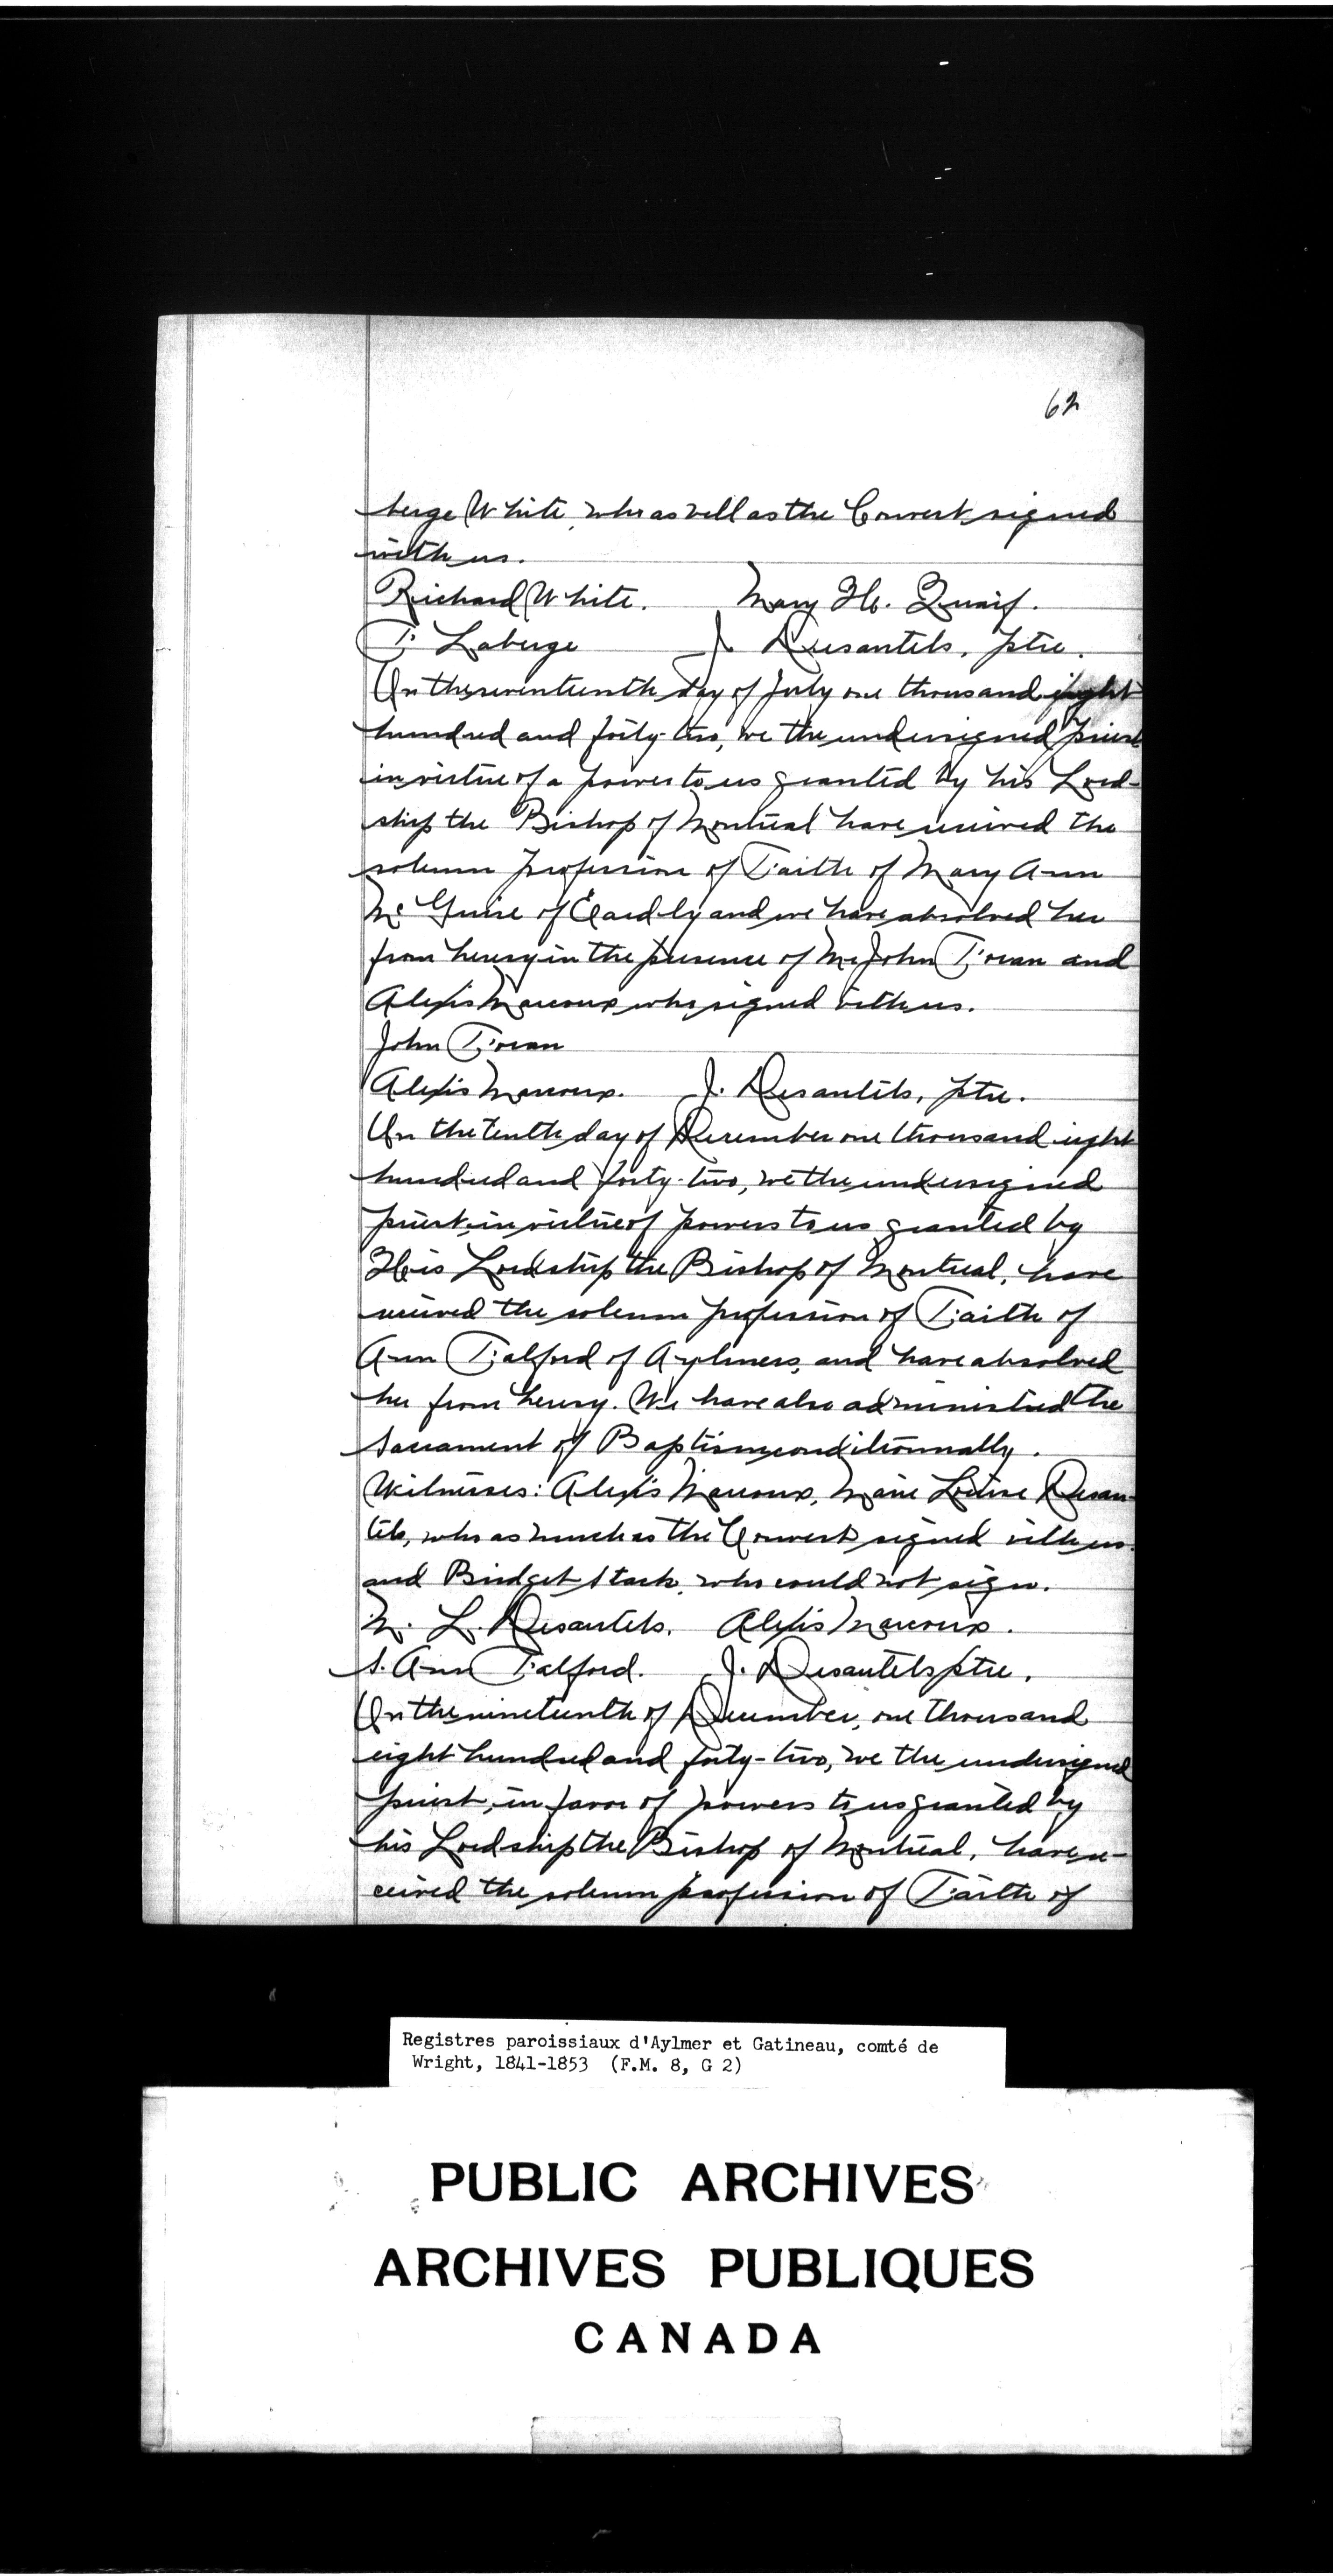 62
berge White, who as well as the Convert signed
with us.
Richard White. Mary H. Quaif.
F. Laberge J. Desautels, ptre.
On the seventeenth day of July one thousand eight
hundred and forty-two, we the undersigned priest
in virtue of a power to us granted by his Lord-
ship the Bishop of Montreal have received the
solemn profession of Faith of Mary Ann
Mc Guire of Eardly and we have absolved her
from heresy in the presence of Mr John Foran and
Alexis Marcoux who signed with us.
John Foran
Alexis Marcoux. J. Desautels, ptre.
On the tenth day of December one thousand eight
hundred and forty-two, we the undersigned
priest, in virtue of powers to us granted by
His Lordship the Bishop of Montreal, have
received the solemn profession of Faith of
Ann Talford of Aylmers, and have absolved
her from heresy. We have also administred the
Sacrament of Baptism conditionnally.
Witnesses: Alexis Marcoux, Marie Louise Desau-
tels, who as much as the Convert signed with us
and Bridget Stack, who could not sign.
M. L. Desautels. Alexis Marcoux.
S. Ann Talford. J. Desautels ptre.
On the nineteenth of December, one thousand
eight hundred and forty-two, we the undersigned
priest, in favor of powers to us granted by
his Lordship the Bishop of Montreal, have re-
ceived the solemn profession of Faith of
Registres paroissiaux d'Aylmer et Gatineau, comté de
Wright, 1841-1853 (F.M. 8, G 2)
PUBLIC ARCHIVES
ARCHIVES PUBLIQUES
CANADA